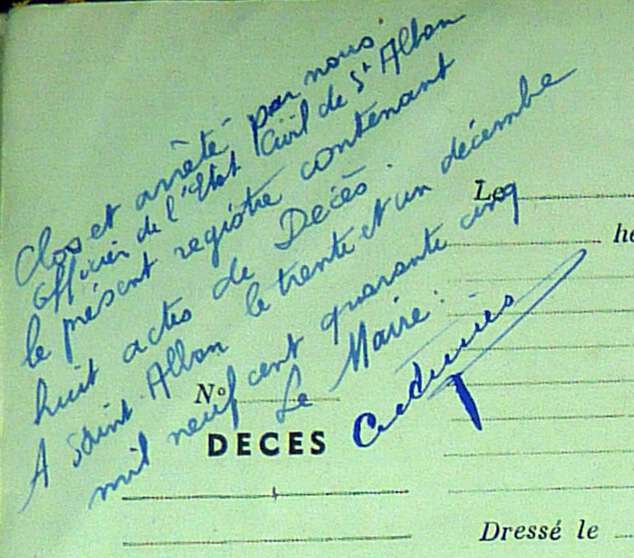 Clos et arrêté par nous
Officier de l'Etat Civil de St Alban
le présent registre contenant
huit actes de Decès.
A Saint Alban le trente et un décembre
mil neuf cent quarante cinq
Le Maire :
Le
he
No
DECES
Dressé le